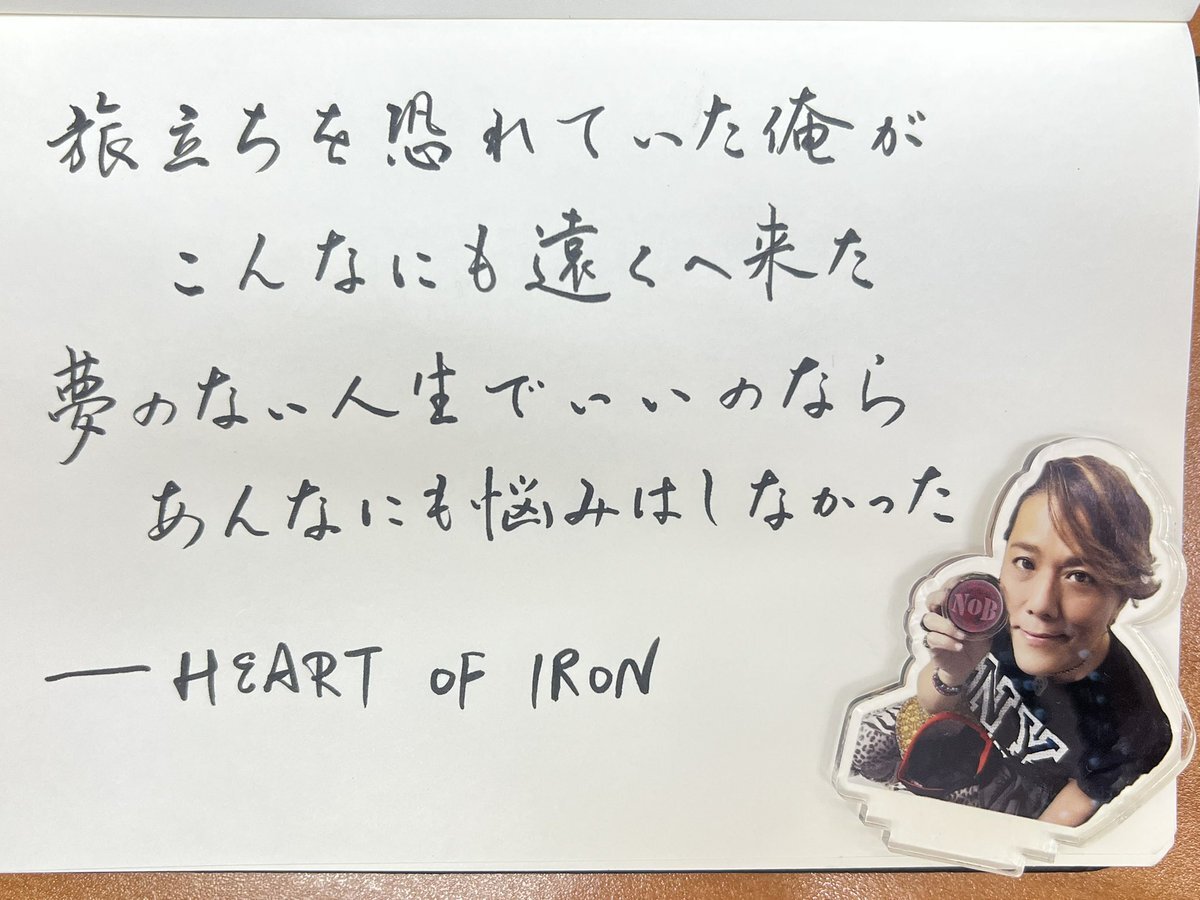 旅立ちを恐れていた俺が
こんなにも遠くへ来た
夢のない人生でいいのなら
あんなにも悩みはしなかった
— HEART OF IRON
NoB
NY